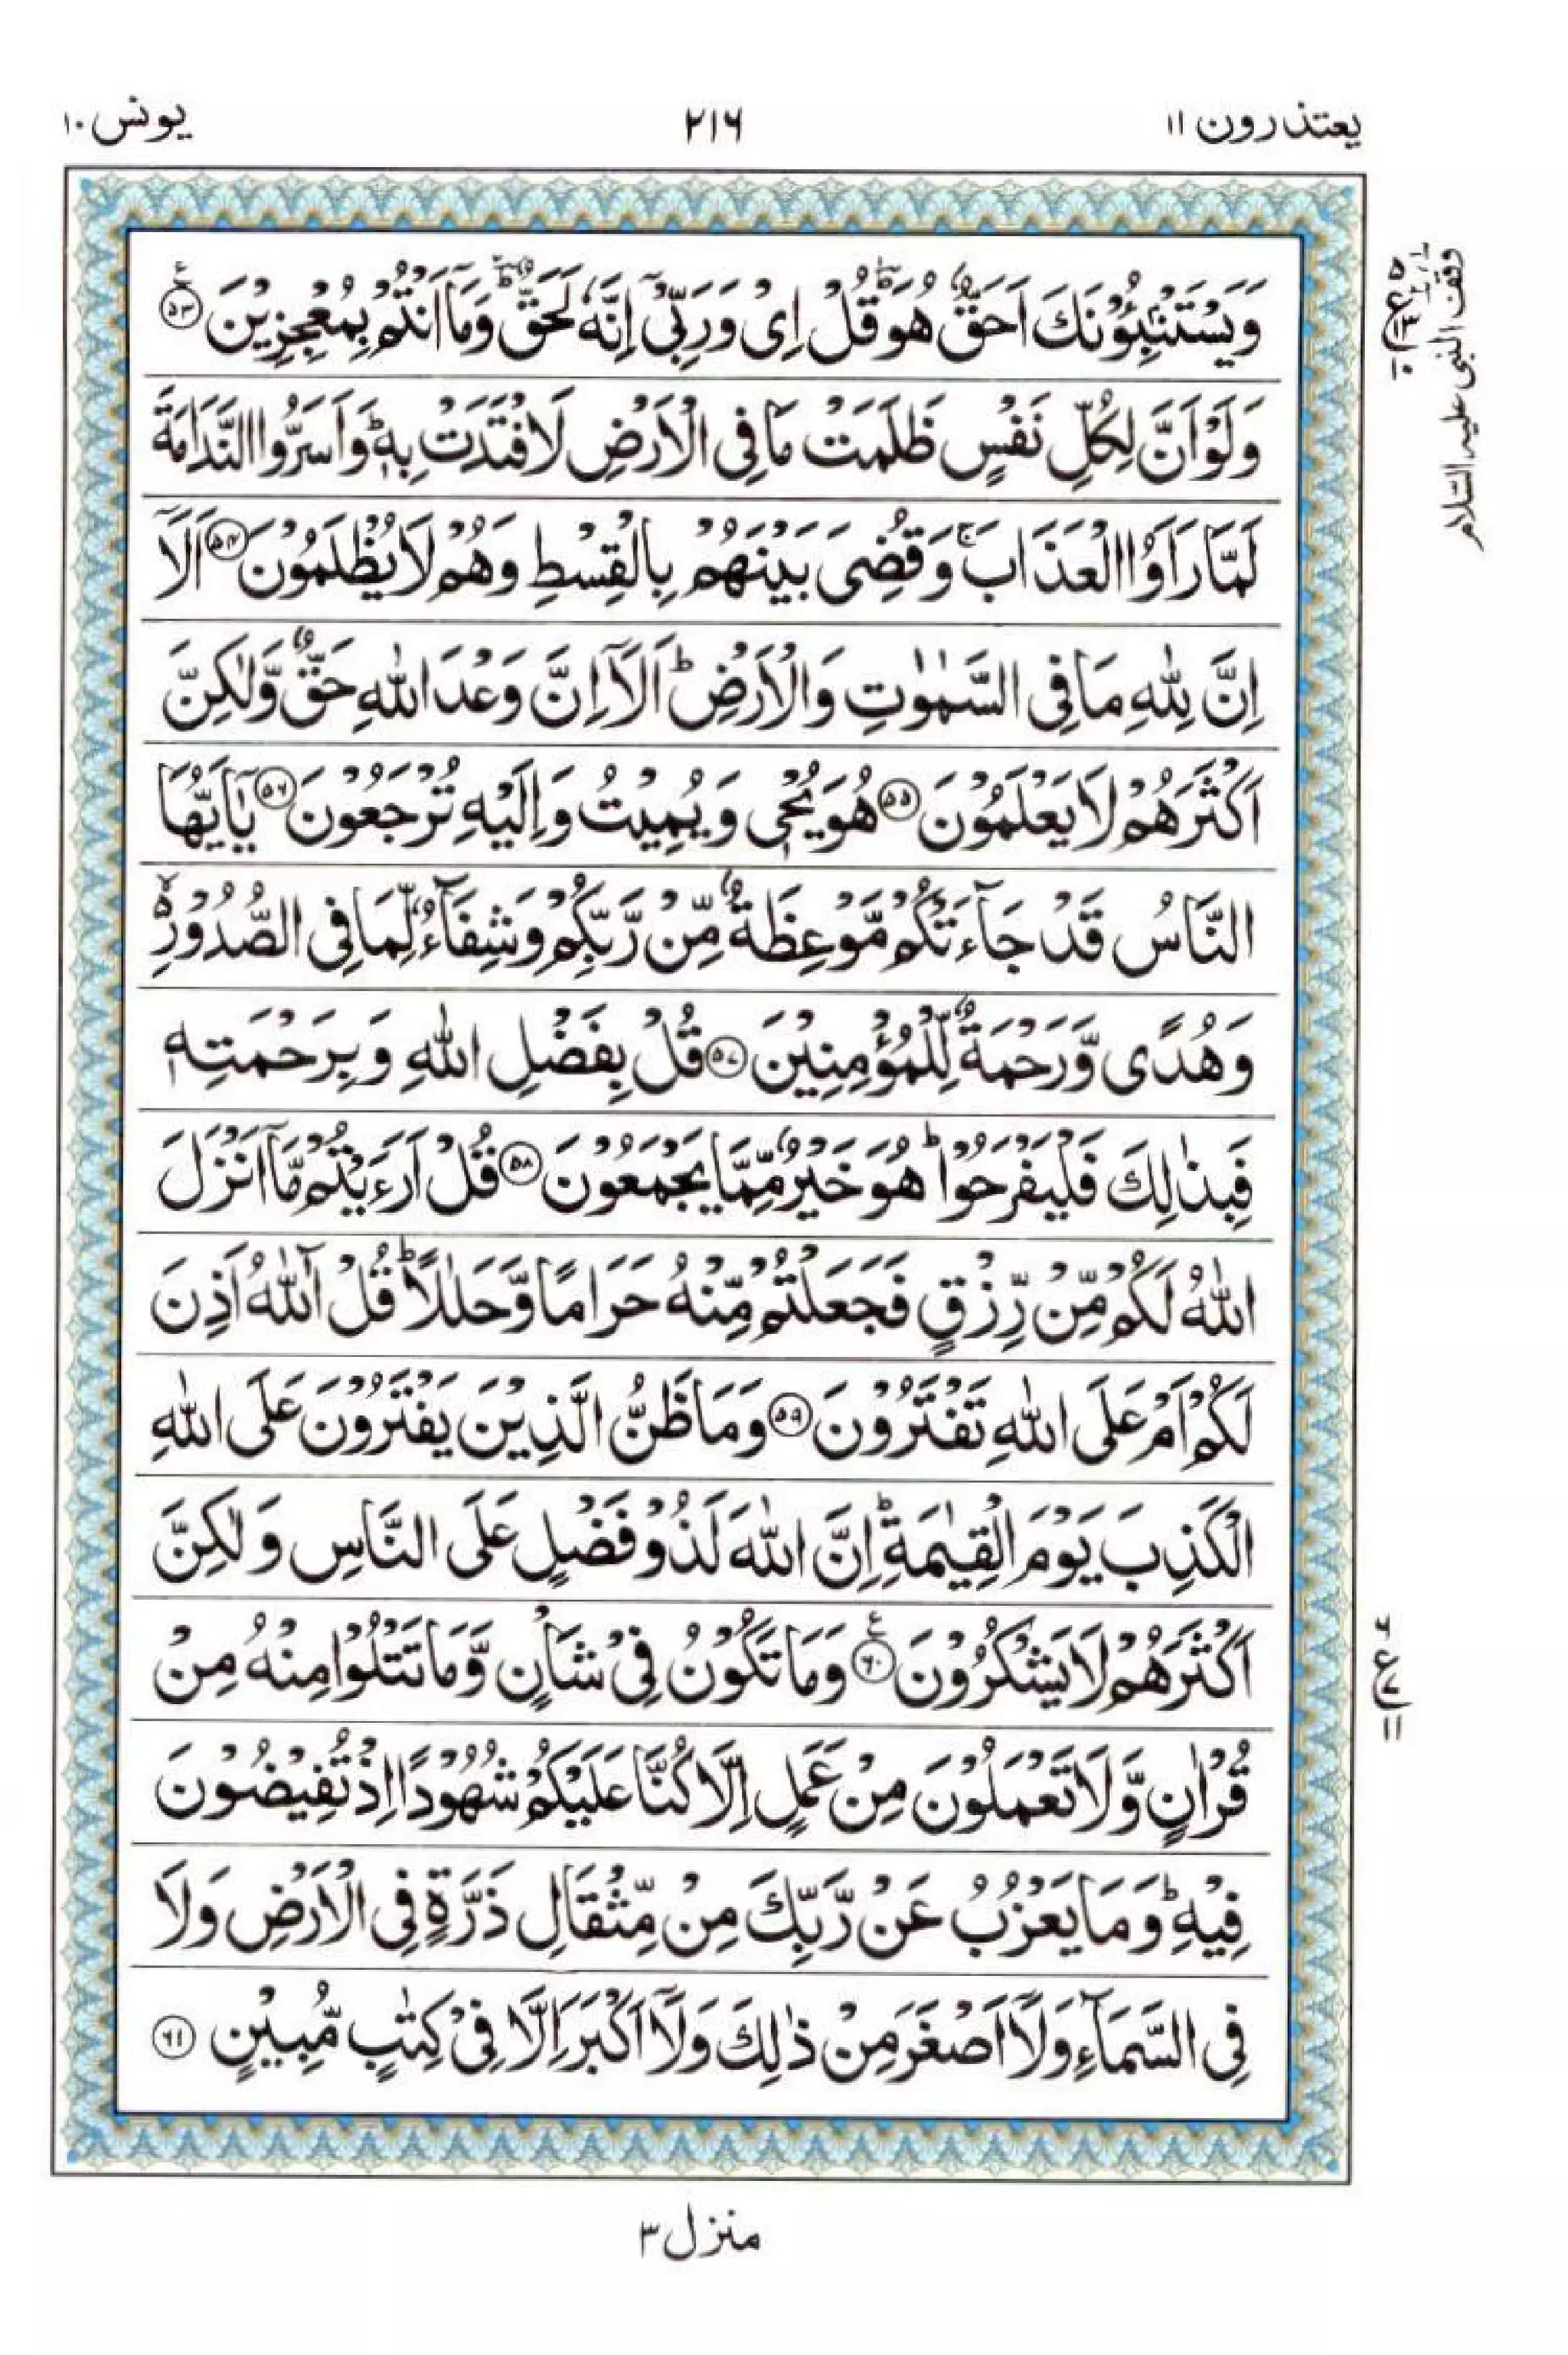 یعتذرون ۱۱
۲۱۶
یونس ۱۰
وَيَسْتَنْۢبِـُٔوْنَكَ اَحَقٌّ هُوَؕ قُلْ اِىْ وَرَبِّىْٓ اِنَّهٗ لَحَقٌّ ؕ وَمَاۤ اَنْتُمْ بِمُعْجِزِيْنَ ﴿۵۳﴾
وَلَوْ اَنَّ لِكُلِّ نَفْسٍ ظَلَمَتْ مَا فِى الْاَرْضِ لَافْتَدَتْ بِهٖؕ وَاَسَرُّوا النَّدَامَةَ
لَمَّا رَاَوُا الْعَذَابَۚ وَقُضِىَ بَيْنَهُمْ بِالْقِسْطِ وَهُمْ لَا يُظْلَمُوْنَ ﴿۵۴﴾ اَلَاۤ
اِنَّ لِلّٰهِ مَا فِى السَّمٰوٰتِ وَالْاَرْضِؕ اَلَاۤ اِنَّ وَعْدَ اللّٰهِ حَقٌّ وَّلٰكِنَّ
اَكْثَرَهُمْ لَا يَعْلَمُوْنَ ﴿۵۵﴾ هُوَ يُحْىٖ وَيُمِيْتُ وَاِلَيْهِ تُرْجَعُوْنَ ﴿۵۶﴾ يٰۤاَيُّهَا
النَّاسُ قَدْ جَآءَتْكُمْ مَّوْعِظَةٌ مِّنْ رَّبِّكُمْ وَشِفَآءٌ لِّمَا فِى الصُّدُوْرِ ۙ۬
وَهُدًى وَّرَحْمَةٌ لِّلْمُؤْمِنِيْنَ ﴿۵۷﴾ قُلْ بِفَضْلِ اللّٰهِ وَبِرَحْمَتِهٖ
فَبِذٰلِكَ فَلْيَفْرَحُوْا ؕ هُوَ خَيْرٌ مِّمَّا يَجْمَعُوْنَ ﴿۵۸﴾ قُلْ اَرَءَيْتُمْ مَّاۤ اَنْزَلَ
اللّٰهُ لَكُمْ مِّنْ رِّزْقٍ فَجَعَلْتُمْ مِّنْهُ حَرَامًا وَّحَلٰلًا ؕ قُلْ آٰللّٰهُ اَذِنَ
لَكُمْ اَمْ عَلَى اللّٰهِ تَفْتَرُوْنَ ﴿۵۹﴾ وَمَا ظَنُّ الَّذِيْنَ يَفْتَرُوْنَ عَلَى اللّٰهِ
الْكَذِبَ يَوْمَ الْقِيٰمَةِ ؕ اِنَّ اللّٰهَ لَذُوْ فَضْلٍ عَلَى النَّاسِ وَلٰكِنَّ
اَكْثَرَهُمْ لَا يَشْكُرُوْنَ ﴿۶۰﴾ وَمَا تَكُوْنُ فِىْ شَاْنٍ وَّمَا تَتْلُوْا مِنْهُ مِنْ
قُرْاٰنٍ وَّلَا تَعْمَلُوْنَ مِنْ عَمَلٍ اِلَّا كُنَّا عَلَيْكُمْ شُهُوْدًا اِذْ تُفِيْضُوْنَ
فِيْهِ ؕ وَمَا يَعْزُبُ عَنْ رَّبِّكَ مِنْ مِّثْقَالِ ذَرَّةٍ فِى الْاَرْضِ وَلَا
فِى السَّمَآءِ وَلَاۤ اَصْغَرَ مِنْ ذٰلِكَ وَلَاۤ اَكْبَرَ اِلَّا فِىْ كِتٰبٍ مُّبِيْنٍ ﴿۶۱﴾
وقف النبی علیہ السلام
۵ ع ۱۳ ۱۰
۶ ع ۷ ۱۱
منزل ۳